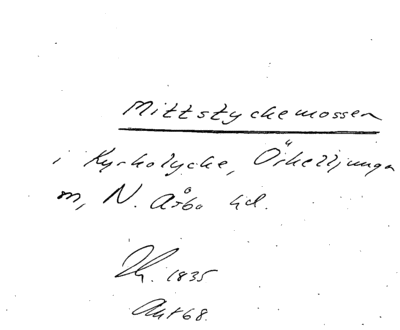 Mittstyckemossen
i Kyrkolycke, Örkelljunga
m, N. Åsbo hd.
Jh. 1835
Akt 68.